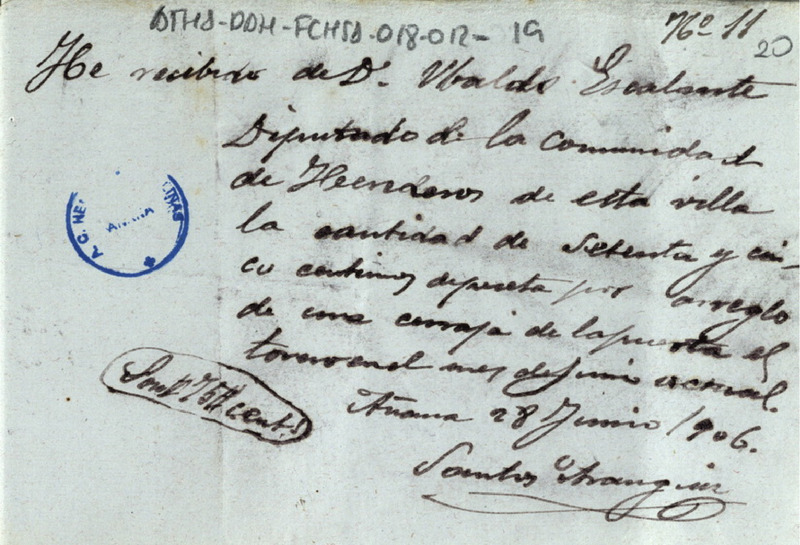 ATHA-DAH-FCHSA-018-012- 19
Nº 11
20
He recibido de D. Ubaldo Escalante
Diputado de la Comunidad
de Heenderos de esta villa
la cantidad de Setenta y cin-
co centimos depeseta por arreglo
de una cerraja de lapuerta el
torno en el mes de Junio actual.
Añana 28 Junio 1906.
Son 75 cent.s
Santos
A.C. HE LINAS
AÑANA